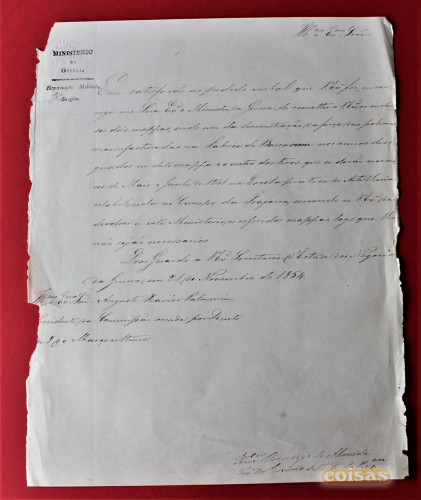 Illmo e Exmo Snr.
MINISTERIO
DA
GUERRA
Repartição Militar
Secção
Em satisfação ao pedido verbal que VExa fez, encar-
rega-me Sua Exa o Ministro da Guerra, de remetter a VExa os inclu-
sos dois mappas, sendo um da demonstração da força das polvoras
manufacturadas na Fabrica de Barcarena nos annos desi-
gnados no dito mappa e o outro dos tiros que se derão nos me-
zes de Maio e Junho de 1841 na Escola pratica de Artilheria
estabelecida no Campo da Trafaria, servindo-se VExa
devolver a este Ministerio os referidos mappas, logo que lhe
não sejão necessarios.
Deos Guarde a VExa Secretaria d'Estado dos Negocios
da Guerra, em 21 de Novembro de 1854.
Illmo e Exmo Snr. Augusto Xavier Palmeirim
Presidente da Commissão creada por Decreto
de Março ultimo
de Almeida
coisas